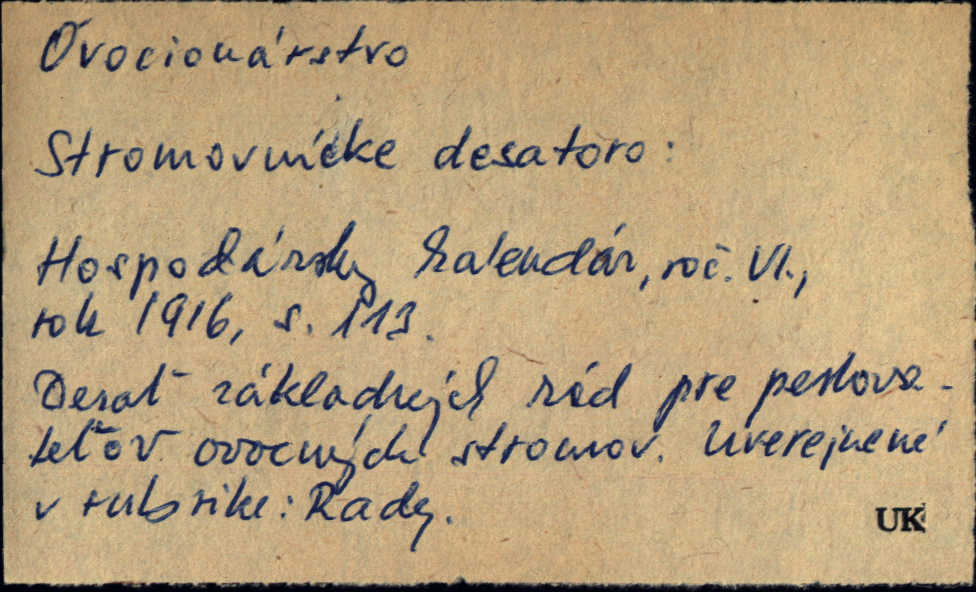 Ovocionárstvo
Stromovnícke desatoro:
Hospodársky kalendár, roč. VI.,
rok 1916, s. 113.
Desať základných rád pre pestova-
teľov ovocných stromov. Uverejnené
v rubrike: Rady.
UK